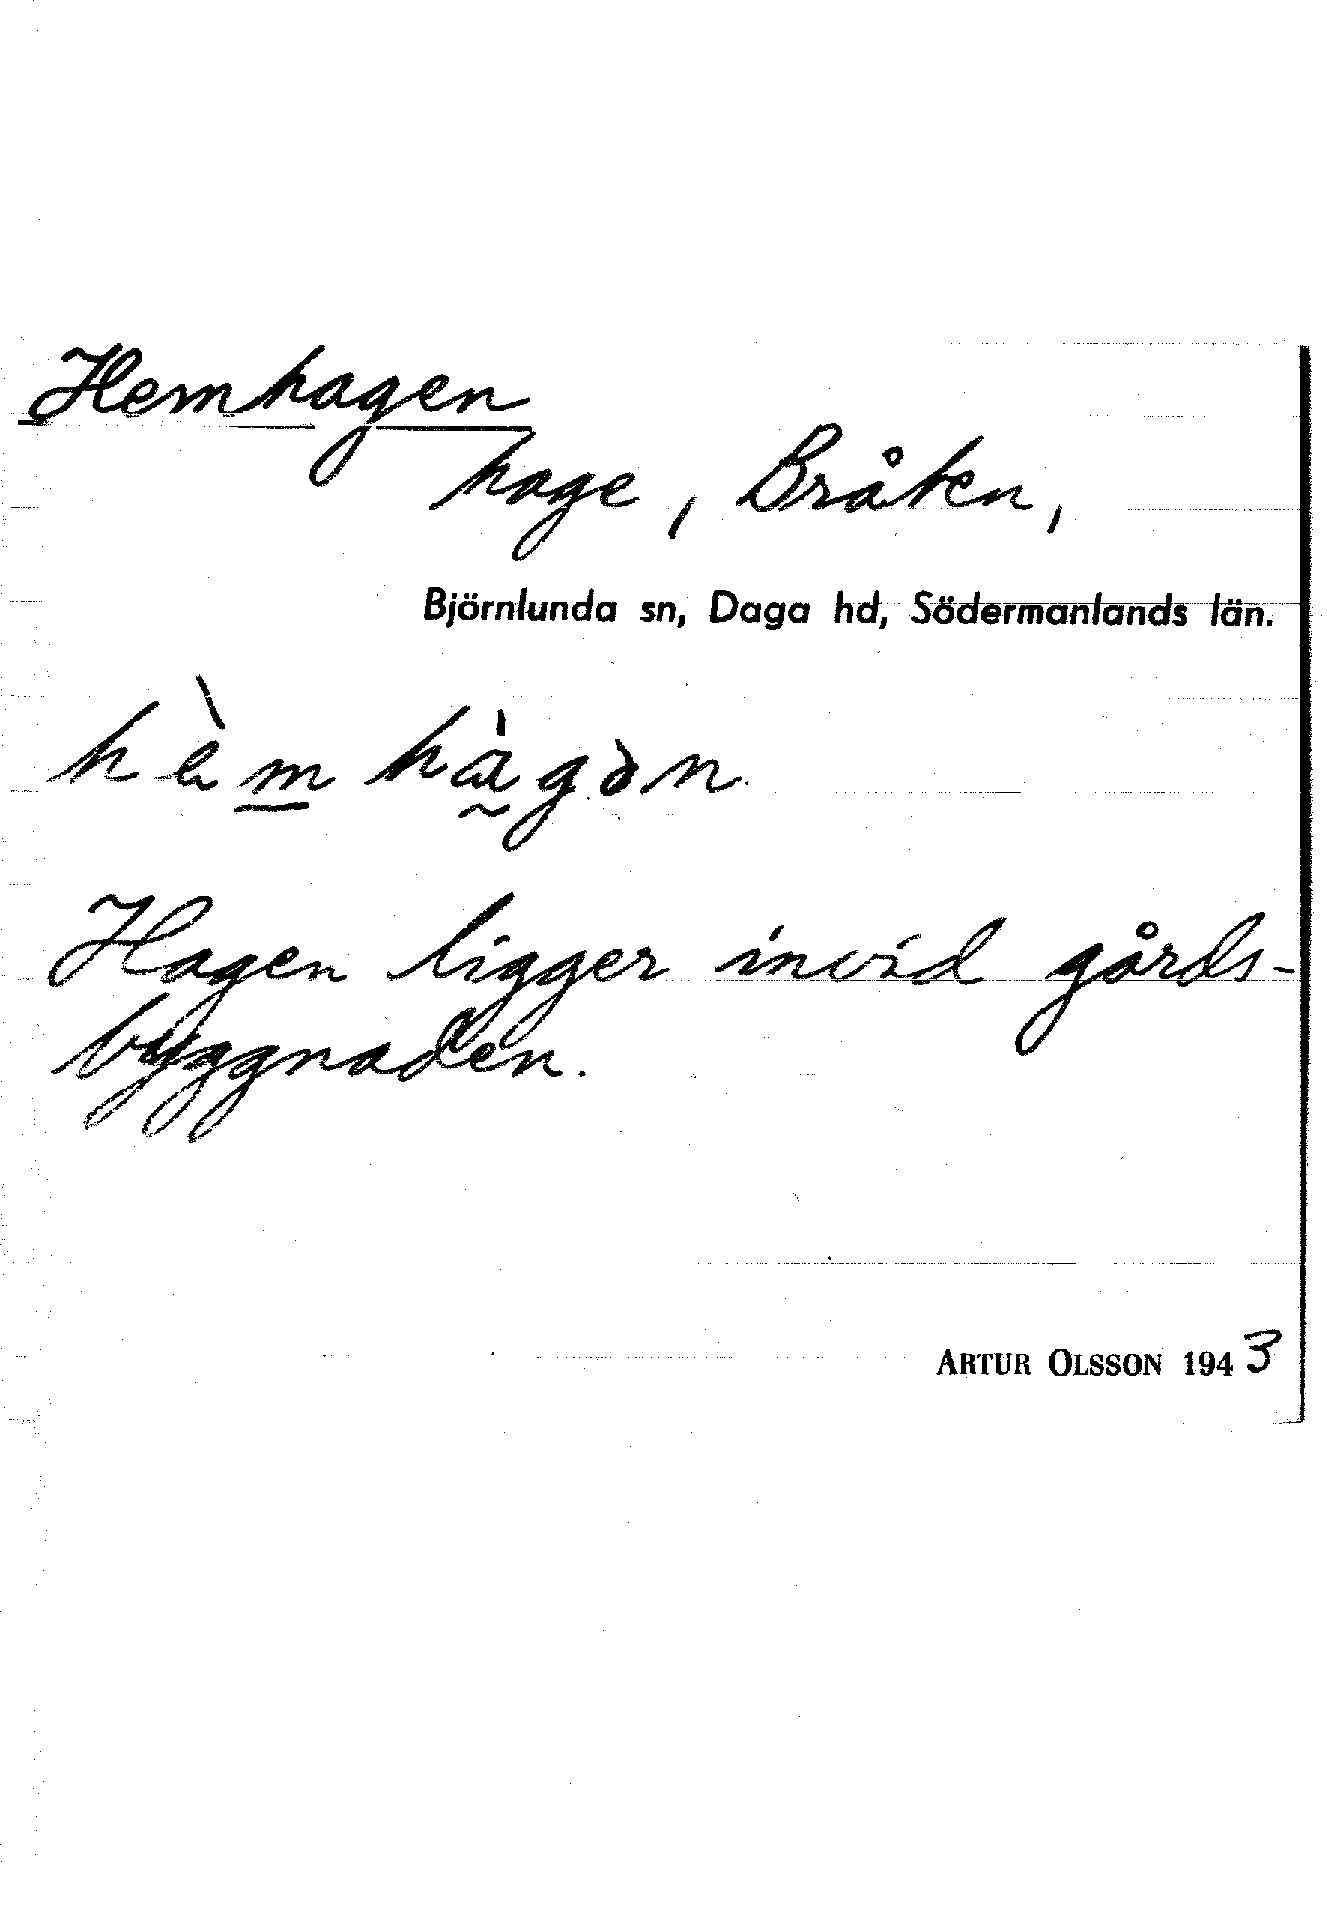 Hemhagen
hage, Bråten,
Björnlunda sn, Daga hd, Södermanlands län.
hèm hàgən
Hagen ligger invid gårds-
byggnaden.
ARTUR OLSSON 1943